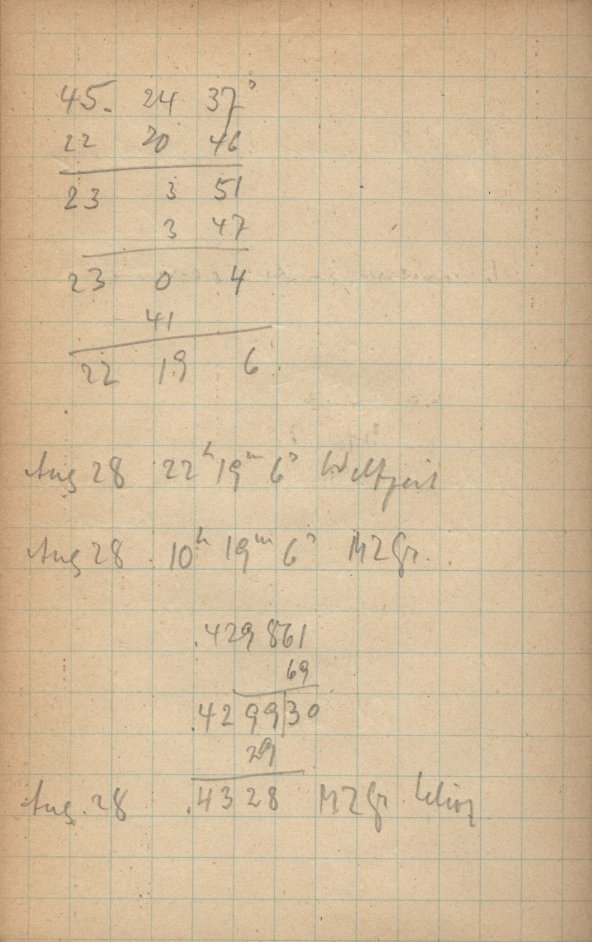 45. 24 37ˢ
22 20 46
23 3 51
3 47
23 0 4
41
22 19 6
Aug 28 22ʰ 19ᵐ 6ˢ Weltzeit
Aug 28 10ʰ 19ᵐ 6ˢ MZGr.
.429861
69
.4299|30
29
Aug. 28 .4328 MZGr helioz